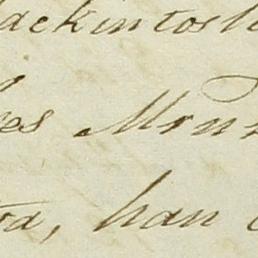 ackintosh
es Mon
oa, han